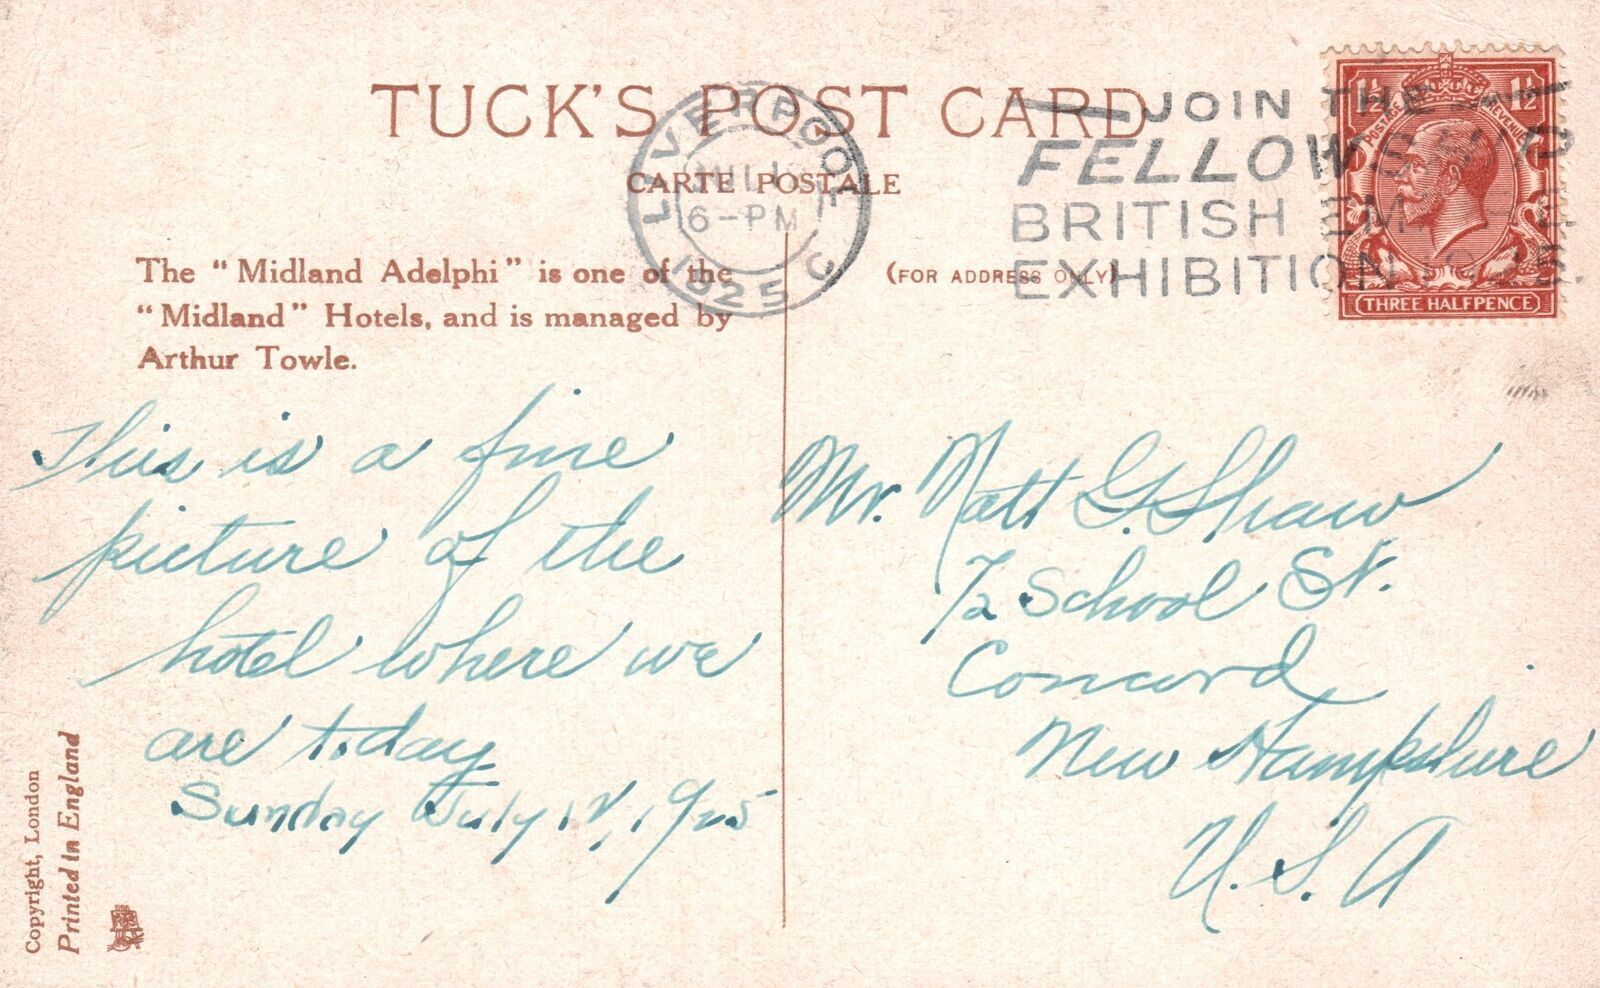 TUCK'S POST CARD
CARTE POSTALE
LIVERPOOL C
6-PM
1925
JOIN THE
FELLOWSHIP
BRITISH EMPIRE
EXHIBITION 1925.
1½ 1½
POSTAGE REVENUE
THREE HALFPENCE
The "Midland Adelphi" is one of the
"Midland" Hotels, and is managed by
Arthur Towle.
(FOR ADDRESS ONLY)
This is a fine
picture of the
hotel where we
are today
Sunday July 12, 1925
Mr. Natt G. Shaw
School St.
Concord
New Hampshire
U.S.A
Copyright, London
Printed in England